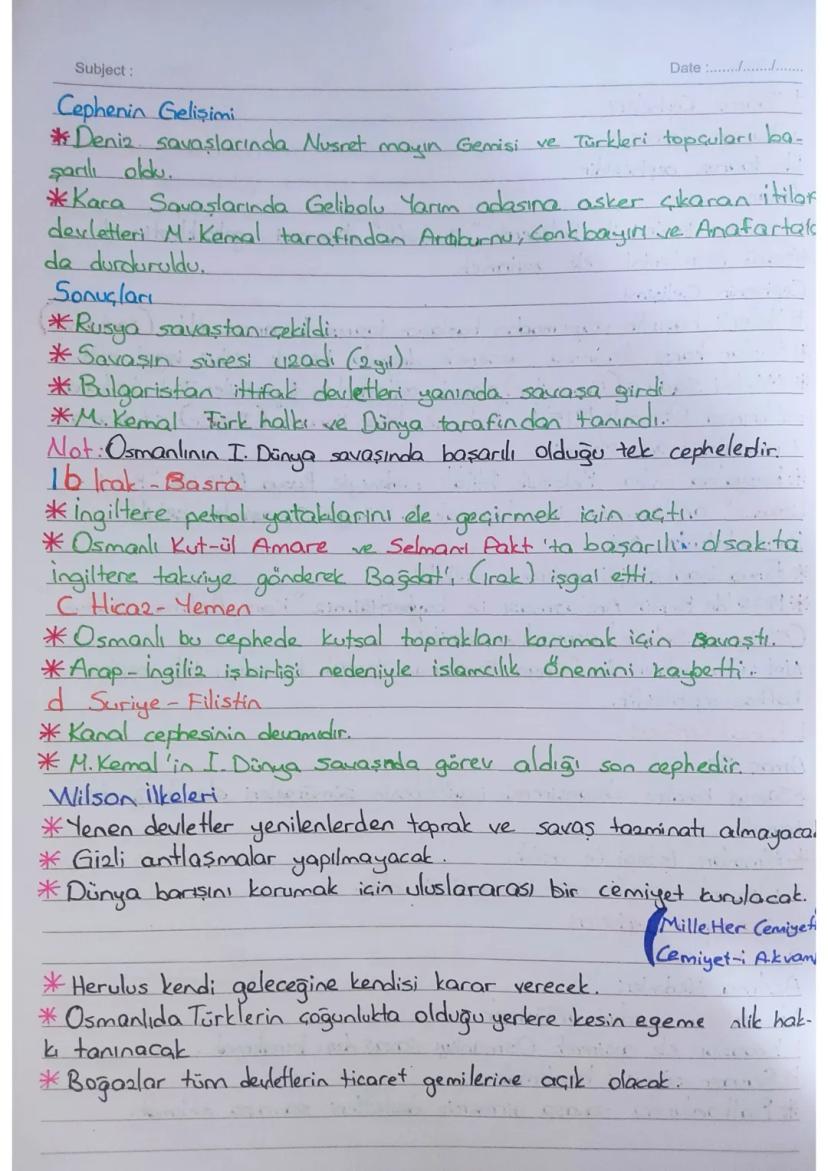 Subject :
Date :......./......./.......
Cephenin Gelişimi
* Deniz savaşlarında Nusret mayın Gemisi ve Türkleri topçuları ba-
şarılı oldu.
* Kara Savaşlarında Gelibolu Yarım adasına asker çıkaran itilaf
devletleri M.Kemal tarafından Arıburnu, Conkbayırı ve Anafartala
da durduruldu.
Sonuçları
* Rusya savaştan çekildi.
* Savaşın süresi uzadı (2 yıl)
* Bulgaristan ittifak devletleri yanında savaşa girdi.
* M. Kemal Türk halkı ve Dünya tarafından tanındı.
Not: Osmanlının I. Dünya savaşında başarılı olduğu tek cephelerdir.
1b Irak - Basra
* ingiltere petrol yataklarını ele geçirmek için açtı.
* Osmanlı Kut-ül Amare ve Selmanı Pakt'ta başarılı olsakta
ingiltere takviye göndererek Bağdat'ı (Irak) işgal etti.
C Hicaz - Yemen
* Osmanlı bu cephede kutsal toprakları korumak için savaştı.
* Arap - İngiliz işbirliği nedeniyle islamcılık önemini kaybetti.
d Suriye - Filistin
* Kanal cephesinin devamıdır.
* M.Kemal'in I. Dünya savaşında görev aldığı son cephedir.
Wilson İlkeleri
* Yenen devletler yenilenlerden toprak ve savaş tazminatı almayaca
* Gizli antlaşmalar yapılmayacak.
* Dünya barışını korumak için uluslararası bir cemiyet kurulacak.
Milletler Cemiyeti
Cemiyet-i Akvam
* Herulus kendi geleceğine kendisi karar verecek.
* Osmanlıda Türklerin çoğunlukta olduğu yerlere kesin egeme nlik hak-
kı tanınacak
* Boğazlar tüm devletlerin ticaret gemilerine açık olacak.